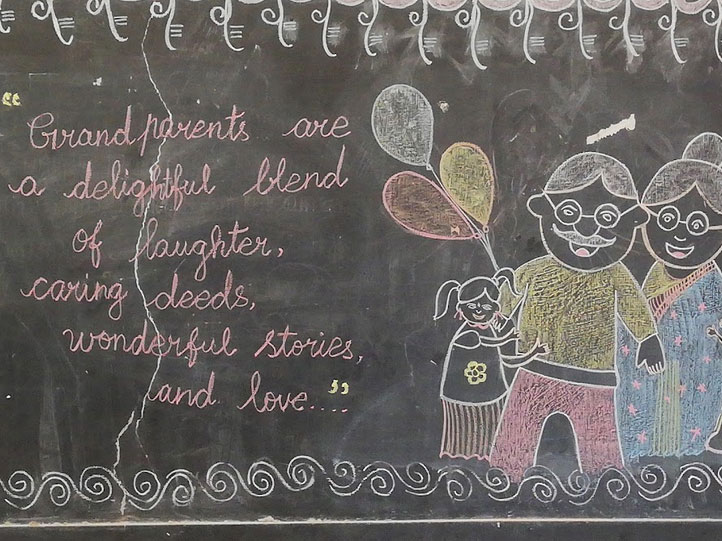 “ Grandparents are
a delightful blend
of laughter,
caring deeds,
wonderful stories,
and love.... ”